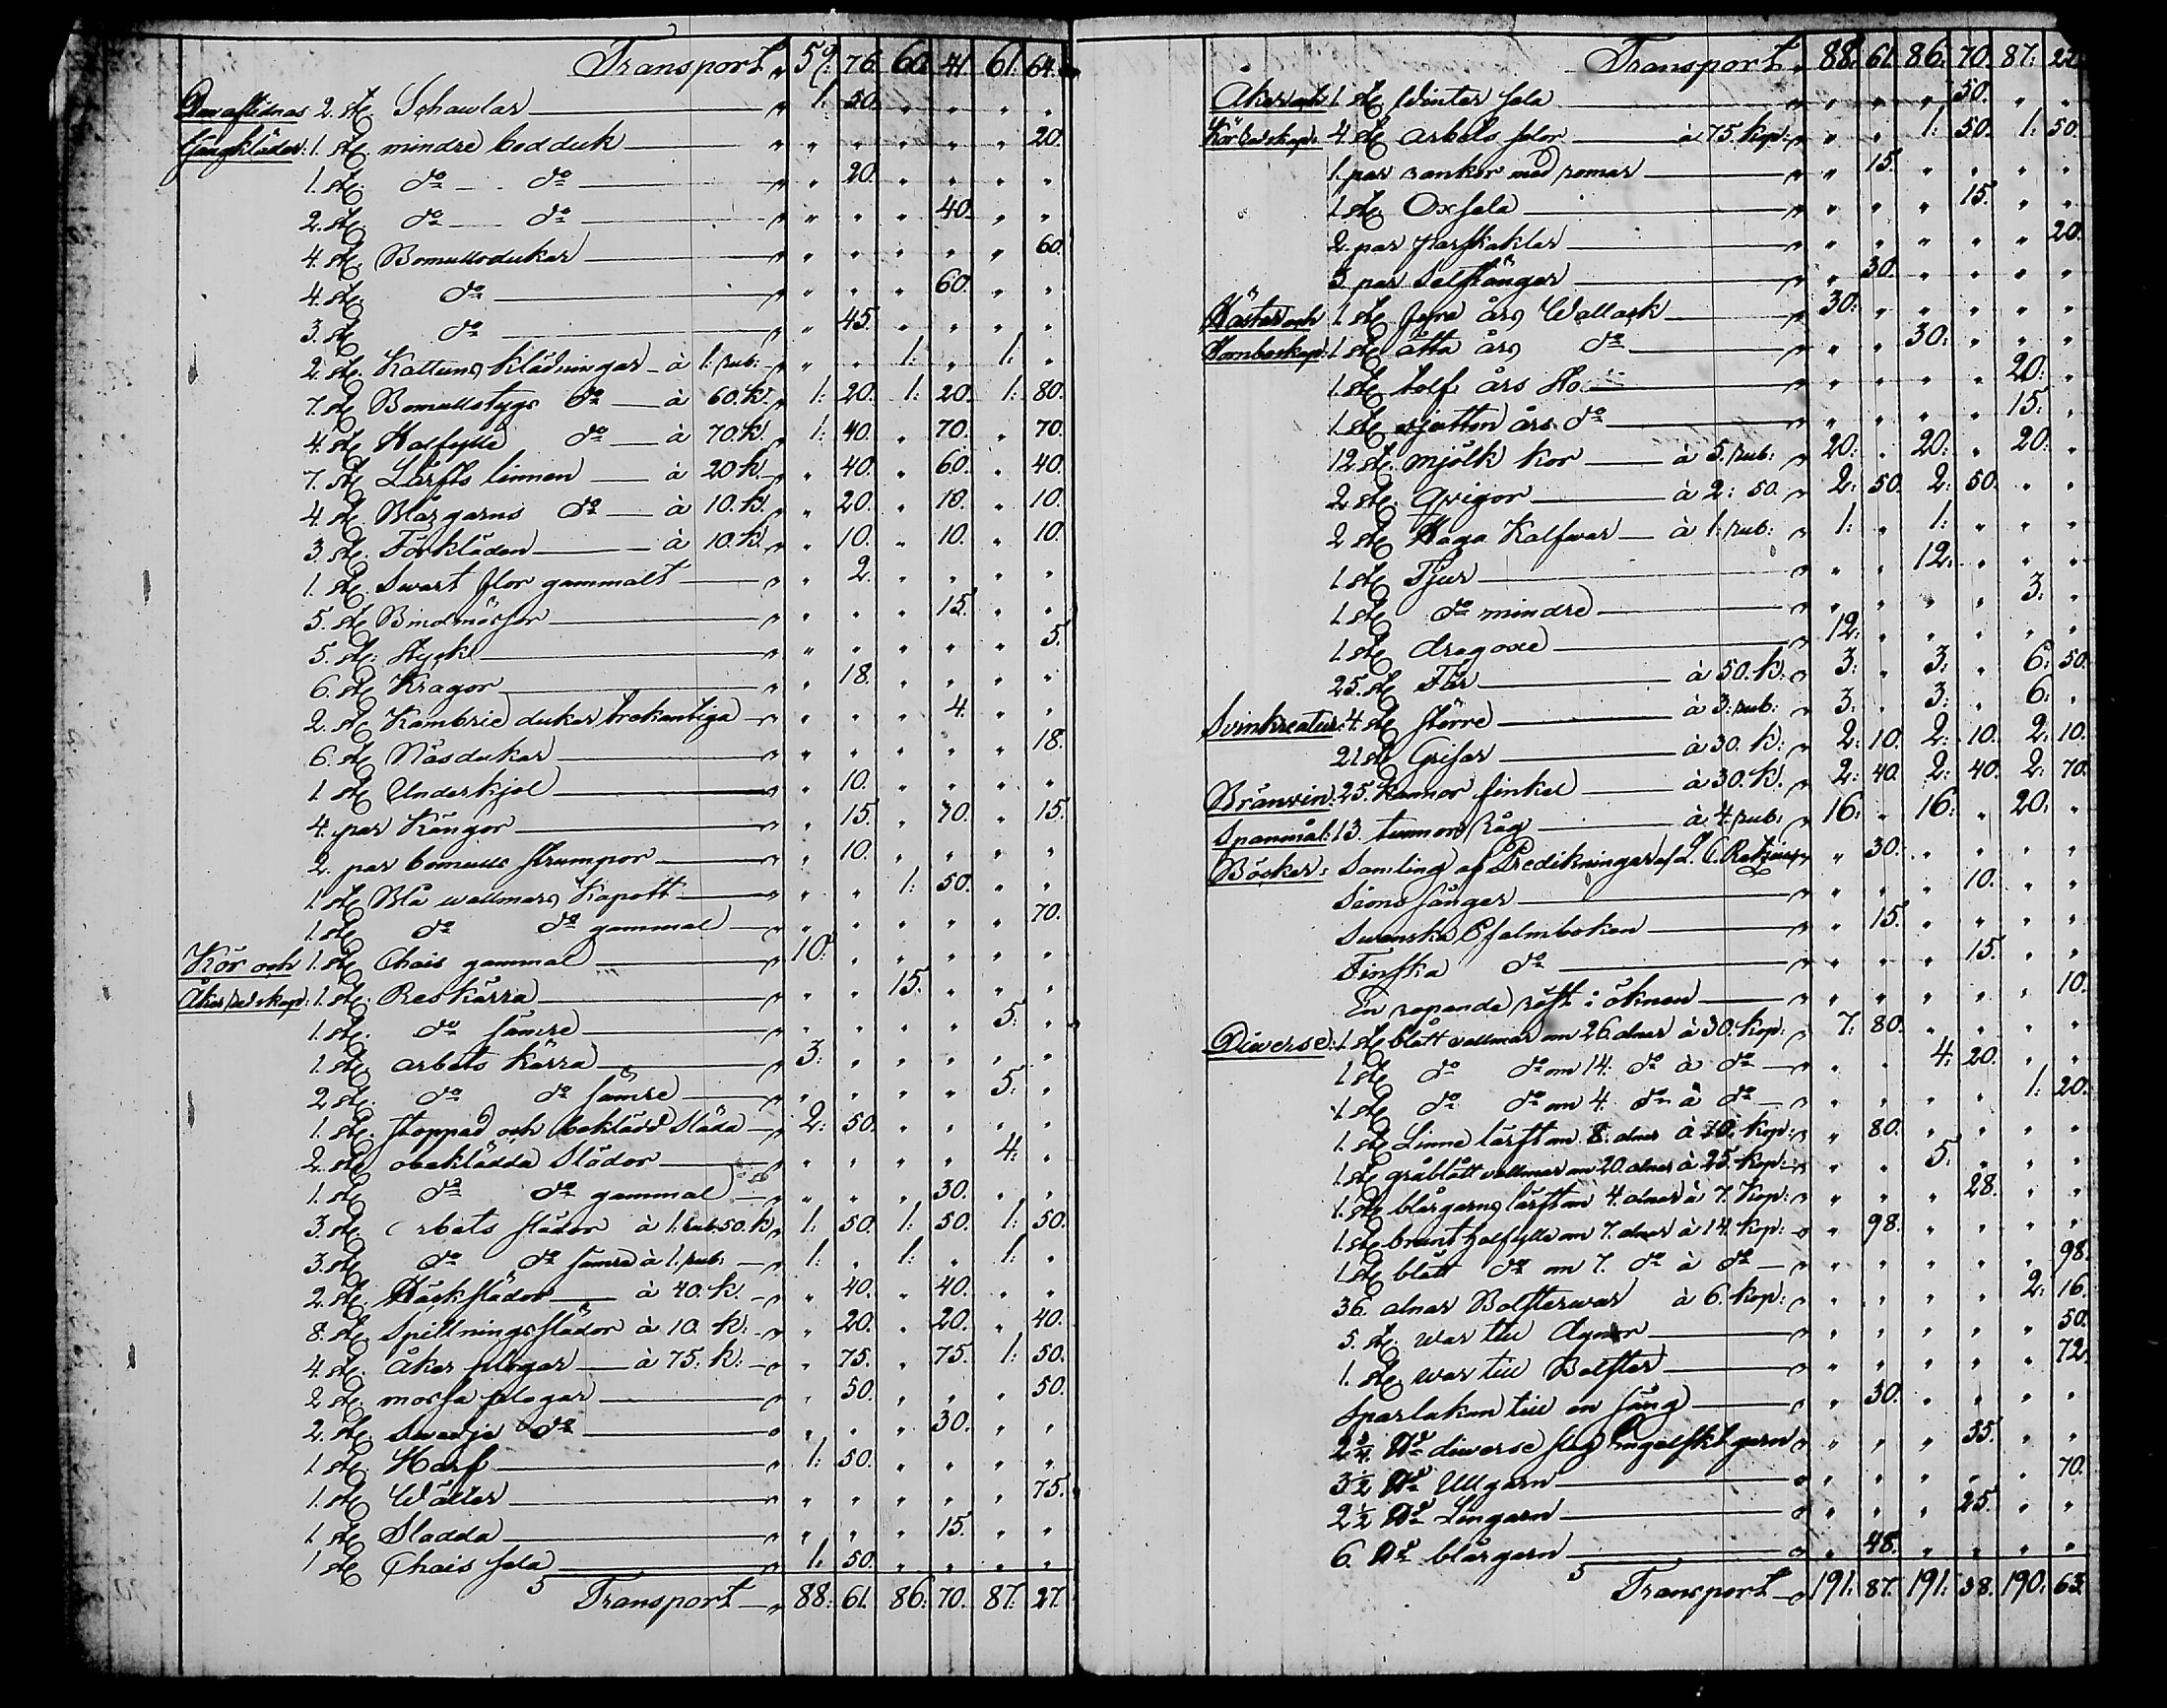 Transport " 59: 76. 60: 41. 61: 64.
Den aflidnas 2. st. Schawlar " 1: 50. " " " "
Gångkläder: 1. st. mindre bodduk " " " " " " 20.
1. st. do do " " 20. " " " "
2. st. do do " " " " 40. " "
4. st. Bomullsdukar " " " " " " 60.
4. st. do " " " " 60. " "
3. st. do " " 45. " " " "
2. st. Kattuns klädningar à 1: rub: " " " 1: " 1: "
7. st. Bomullstygs do à 60. k. " 1: 20. 1: 20. 1: 80.
4. st. Halfylle do à 70. k. " 1: 40. " 70. " 70.
7. st. Lärfts linnen à 20 k. " " 40. " 60. " 40.
4. st. Blårgarns do à 10. k. " " 20. " 10. " 10.
3. st. Förkläden à 10. k. " " 10. " 10. " 10.
1. st. Swart flor gammalt " " 2. " " " "
5. st. Bindmössor " " " " 15. " "
5. st. Stycke " " " " " " 5.
6. st. Kragor " " 18. " " " "
2. st. Kambric dukar trekantiga " " " " 4. " "
6. st. Näsdukar " " " " " " 18.
1. st. Underkjol " " 10. " " " "
4. par Kängor " " 15. " 70. " 15.
2. par bomulls strumpor " " 10. " " " "
1. st. Blå wallmars Kapott " " " 1: 50. " "
1. st. do do gammal " " " " " " 70.
Kör och 1. st. Chais gammal " 10: " " " " "
Åker redskap: 1. st. Reskärra " " " 15: " " "
1. st. do sämre " " " " " 5: "
1. st. arbets kärra " 3: " " " " "
2 st. do do sämre " " " " " 5: "
1. st. stoppad och beklädd Släda " 2: 50. " " " "
2. st. obeklädda Slädor " " " " " 4: "
1. st. do do gammal " " " " 30. " "
3. st. arbets slädor à 1: rub. 50. k " 1: 50. 1: 50. 1: 50.
3. st. do do sämre à 1. rub: " 1: " 1: " 1: "
2. st. Häckslädor à 40. k. " " 40. " 40. " "
8. st. Spillningsslädor à 10. k: " " 20. " 20. " 40.
4. st. Åker plogar à 75. k: " " 75. " 75. 1: 50.
2 st. mossa plogar " " 50. " " " 50.
2. st. Swedje do " " " " 30. " "
1. st. Harf " 1: 50. " " " "
1. st. Wälter " " " " " " 75.
1. st. Sladda " " " " 15. " "
1 st. Chais sela " 1: 50. " " " "
Transport " 88: 61. 86: 70. 87: 27.
Transport " 88: 61. 86: 70. 87: 27.
Åker och 1. st. Winter sela " " " " 50. " "
Kör redskap: 4 st. arbets selor à 75. kop: " " " 1: 50. 1: 50.
1. par rankor med romar " " 15. " " " "
1 st. Oxsela " " " " 15. " "
2. par parskaklar " " " " " " 20.
3 par Selstänger " " 30. " " " "
Hästar och 1. st. fyra års Wallack " 30: " " " " "
Hornboskap: 1 st. åtta års do " " " 30: " " "
1. st. tolf års Sto " " " " " 20: "
1. st. sjutton års do " " " " " 15: "
12 st. mjölk kor à 5. rub: " 20: " 20: " 20: "
2 st. Qvigor à 2: 50. " 2: 50. 2: 50. " "
2 st. Haga Kalfwar à 1: rub: " 1: " 1: " " "
1. st. Tjur " " " 12: " " "
1. st. do mindre " " " " " 3: "
1. st. dragoxe " 12: " " " " "
25. st. Får à 50. k: " 3: " 3: " 6: 50.
Svinkreatur: 4. st. större à 3: rub: " 3: " 3: " 6: "
21 st. Grisar à 30. k: " 2: 10. 2: 10. 2: 10.
Bränvin: 25. kannor finkel à 30. k. " 2: 40. 2: 40. 2: 70.
Spanmål: 13. tunnor Råg à 4. rub: " 16: " 16: " 20: "
Böcker: Samling af Predikningar af " " 30. " " " "
Sions sånger " " " " 10. " "
Swenska Psalmboken " " 15. " " " "
Finska do " " " " 15. " "
En ropande röst i öknen " " " " " " 10.
Diverse: 1. st. blått vallmar om 26. alnar à 30. kop: " 7: 80. " " " "
1 st. do do om 14: do à do " " " 4: 20. " "
1. st. do do om 4. do à do " " " " " 1: 20.
1. st. Linne lärft om 8. alnar à 10. kop: " " 80. " " " "
1 st. gråblått vallmar om 20. alnar à 25. kop: " " " 5: " " "
1. st. blårgarns lärft om 4. alnar à 7. kop: " " " " 28. " "
1. st. brunt halfylle om 7. alnar à 14. kop: " " 98. " " " "
1 st. blått do om 7. do à do " " " " " " 98.
36. alnar Bolsterwar à 6. kop: " " " " " 2: 16.
5. st. war till dynor " " " " " " 50.
1. st. war till Bolster " " " " " " 72.
Sparlakan till en säng " " 30. " " " "
2 3/4. diverse slag Engelskt garn " " " " 55. " "
3 1/2 Ullgarn " " " " " " 70.
2 1/2 Lingarn " " " " 25. " "
6. blårgarn " " 48. " " " "
Transport " 191: 87. 191: 38. 190: 63.